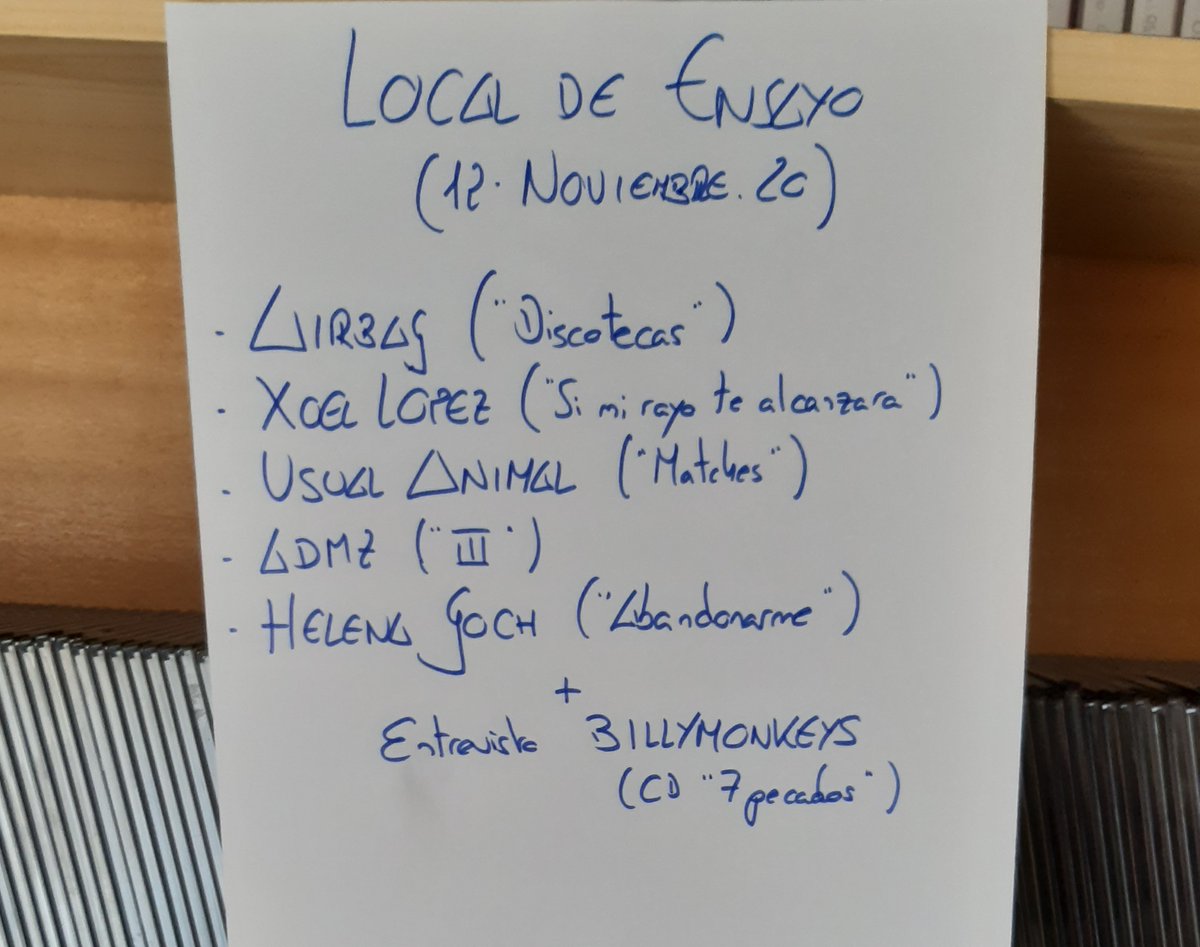 LOCAL DE ENSAYO
(12. NOVIEMBRE. 20)
- AIRBAG ("Discotecas")
- XOEL LÓPEZ ("Si mi rayo te alcanzara")
- USUAL ANIMAL ("Matches")
- ADMZ ("III")
- HELENA GOCH ("Abandonarme")
+
Entrevista BILLYMONKEYS
(CD "7 pecados")